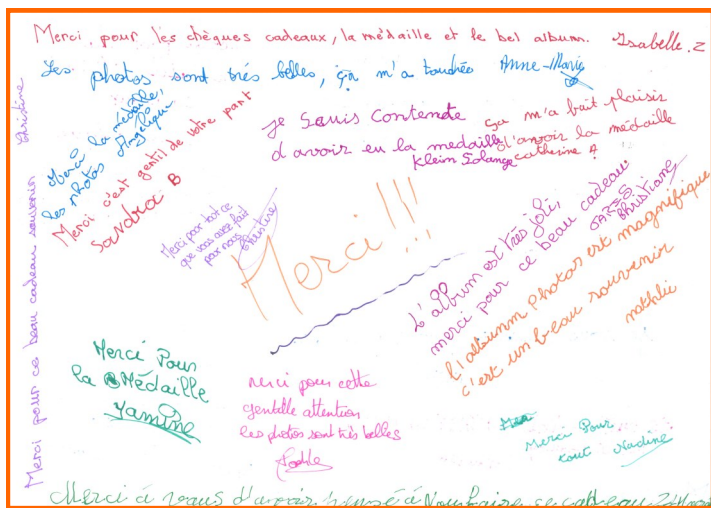 Merci pour les chèques cadeaux, la médaille et le bel album. Isabelle.Z
Les photos sont très belles, ça m'a touchée Anne-Marie
Merci pour ce beau cadeau souvenir Christine
Merci la médaille,
les photos Angélique
Merci c'est gentil de votre part
Sandra B
je suis contende
d'avoir eu la medaille
Klein Solange
ça m'a fait plaisir
d'avoir la médaille
catherine A
Merci pour tout ce
que vous avez fait
pour nous
Christine
Merci!!!
L'album est très joli,
merci pour ce beau cadeau
Christiane
L'albumm photos est magnifique
c'est un beau souvenir
Merci Pour
la Médaille
Yamine
merci pour cette
gentille attention
les photos sont très belles
Merci Pour
tout Nadine
Merci à vous d'avoir pensé à Nous faire ce cadeau